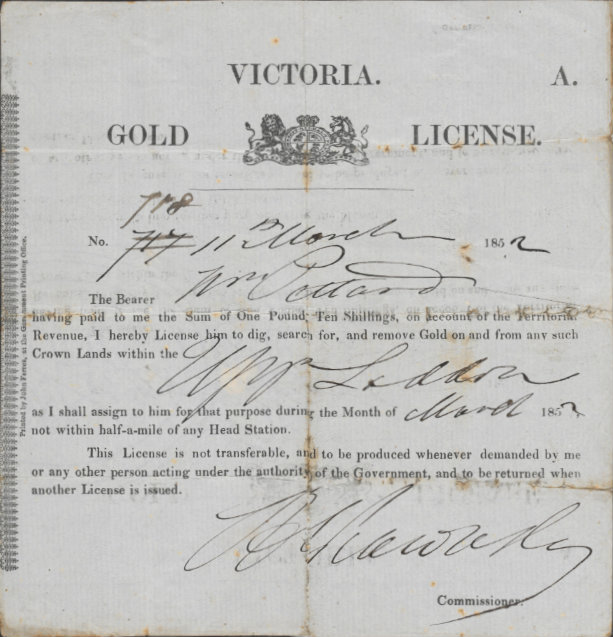 VICTORIA. A.
GOLD LICENSE.
718
No. 717 11th March 1852
The Bearer Wm Pollard
having paid to me the Sum of One Pound, Ten Shillings, on account of the Territorial
Revenue, I hereby License him to dig, search for, and remove Gold on and from any such
Crown Lands within the Upper Loddon
as I shall assign to him for that purpose during the Month of March 1852,
not within half-a-mile of any Head Station.
This License is not transferable, and to be produced whenever demanded by me
or any other person acting under the authority of the Government, and to be returned when
another License is issued.
Commissioner.
Printed by John Ferres, at the Government Printing Office.